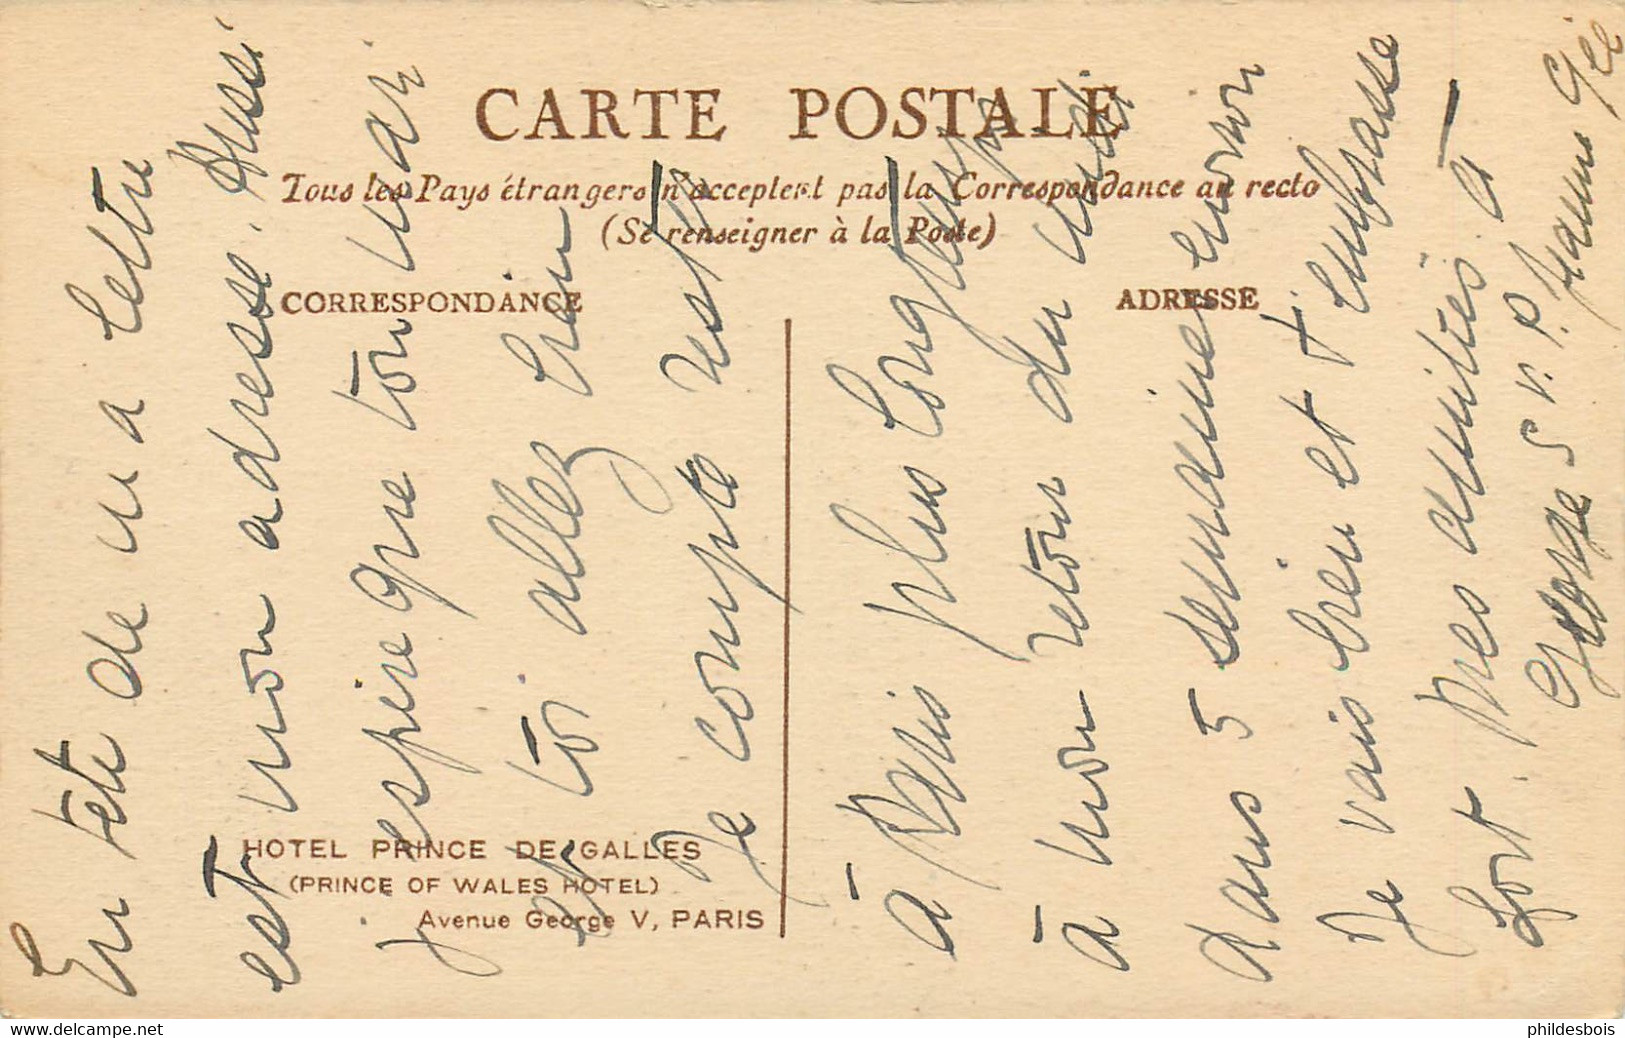 CARTE POSTALE
Tous les Pays étrangers n'acceptent pas la Correspondance au recto
(Se renseigner à la Poste)
CORRESPONDANCE
ADRESSE
HOTEL PRINCE DE GALLES
(PRINCE OF WALES HOTEL)
Avenue George V, PARIS
En tête de ma lettre
est mon adresse. Aussi
j'espère que ton mari
et toi allez bien
Je compte rester
à Paris plus longtemps
à mon retour du midi
dans 5 semaines environ
Je vais bien et t'embrasse
fort. Mes amitiés à
George S.V.P.
www.delcampe.net
phildesbois